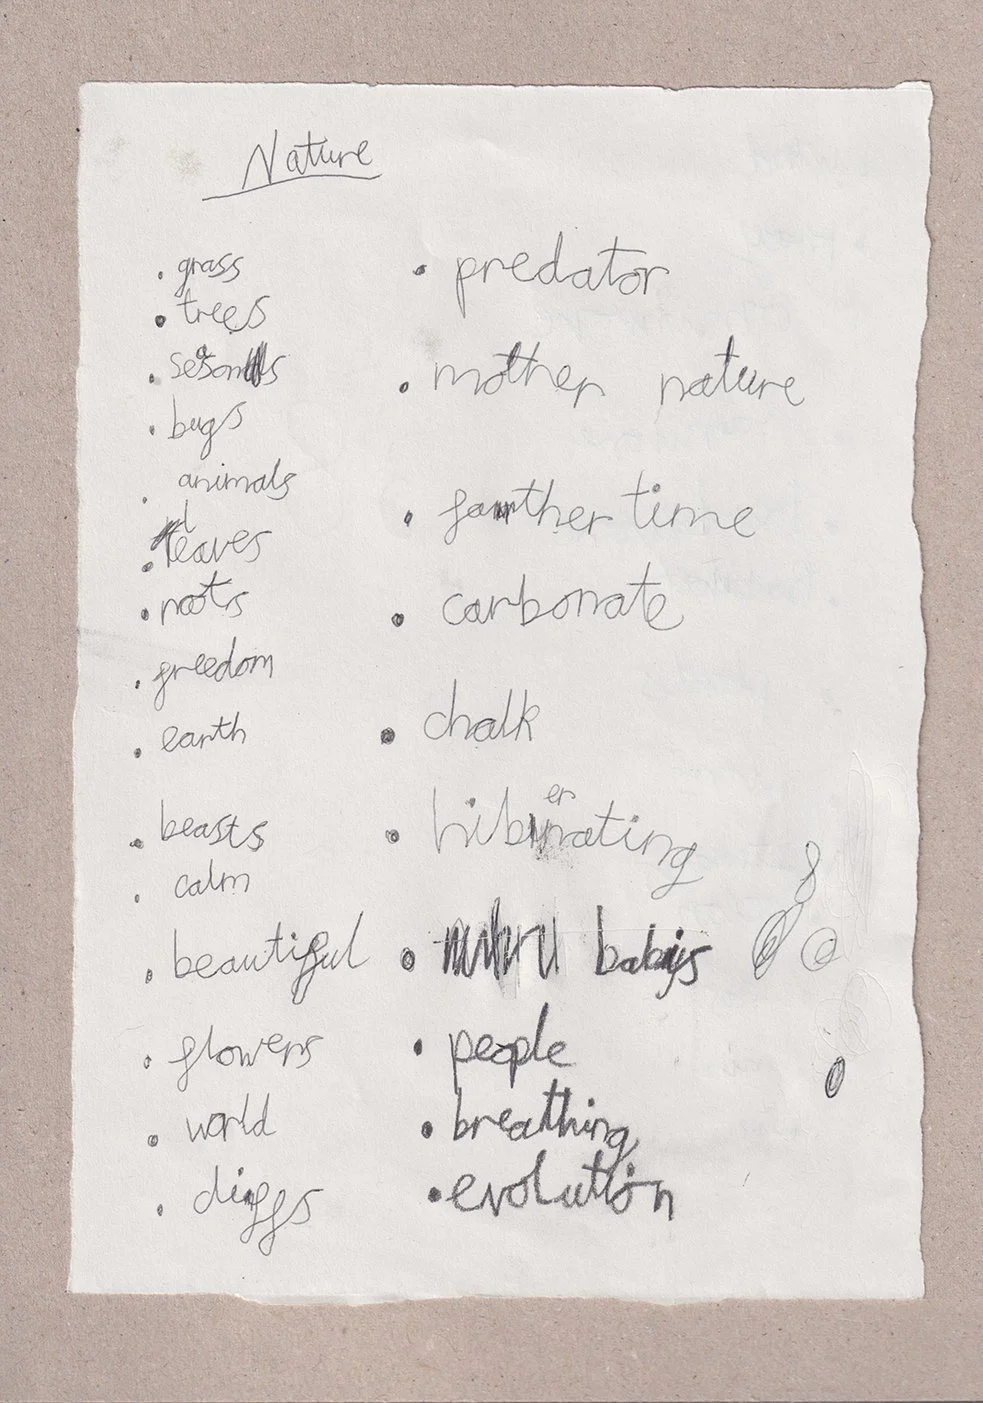 Nature
. grass
. trees
. seasons
. bugs
. animals
. leaves
. roots
. freedom
. earth
. beasts
. calm
. beautiful
. flowers
. world
. cliffs
. predator
. mother nature
. father time
. carbonate
. chalk
. hibernating
. babys
. people
. breathing
. evolution